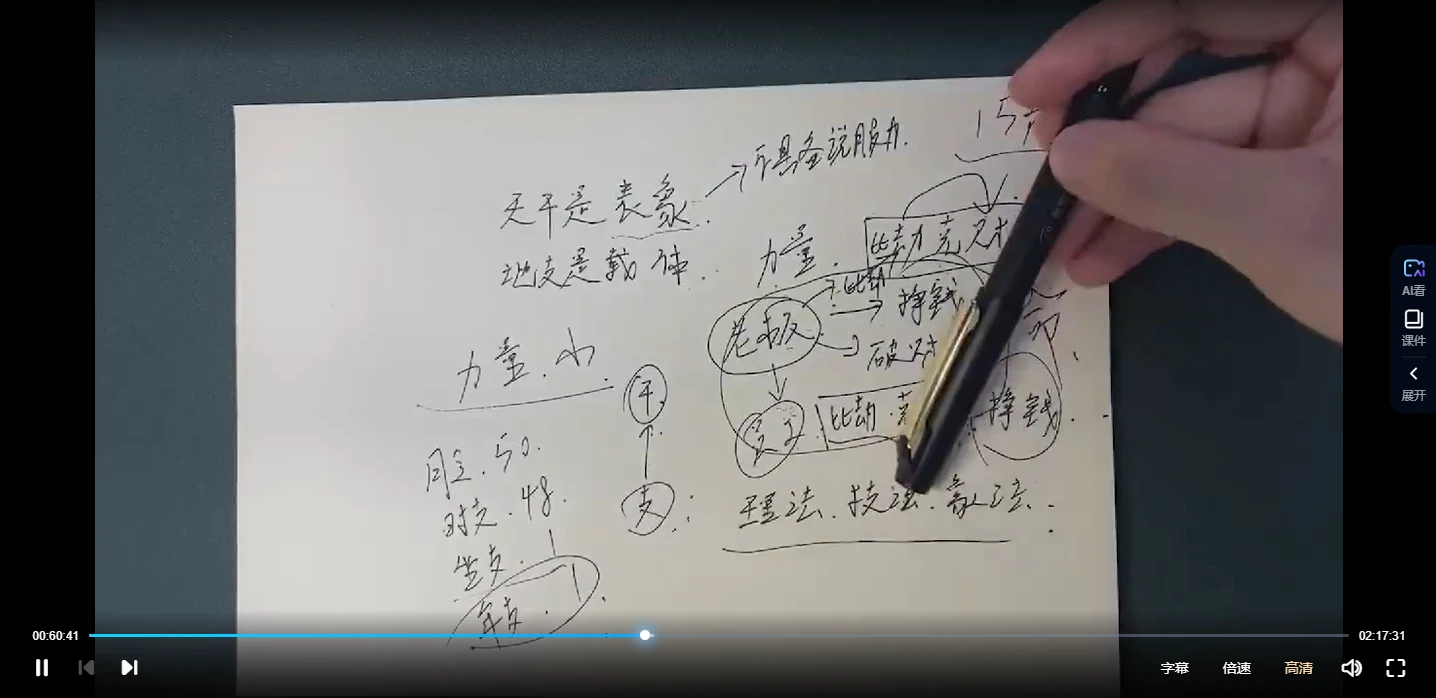 →不具备说服力.
天干是表象..
地支是载体..
力量.
比劫克财
比劫
老板
→挣钱
破财
印
力量.小
干
月支.50.
时支.48.
坐支.
年支.
支
员工
比劫.克
挣钱.
理法.技法.象法.
AI看
课件
展开
00:60:41
02:17:31
字幕
倍速
高清